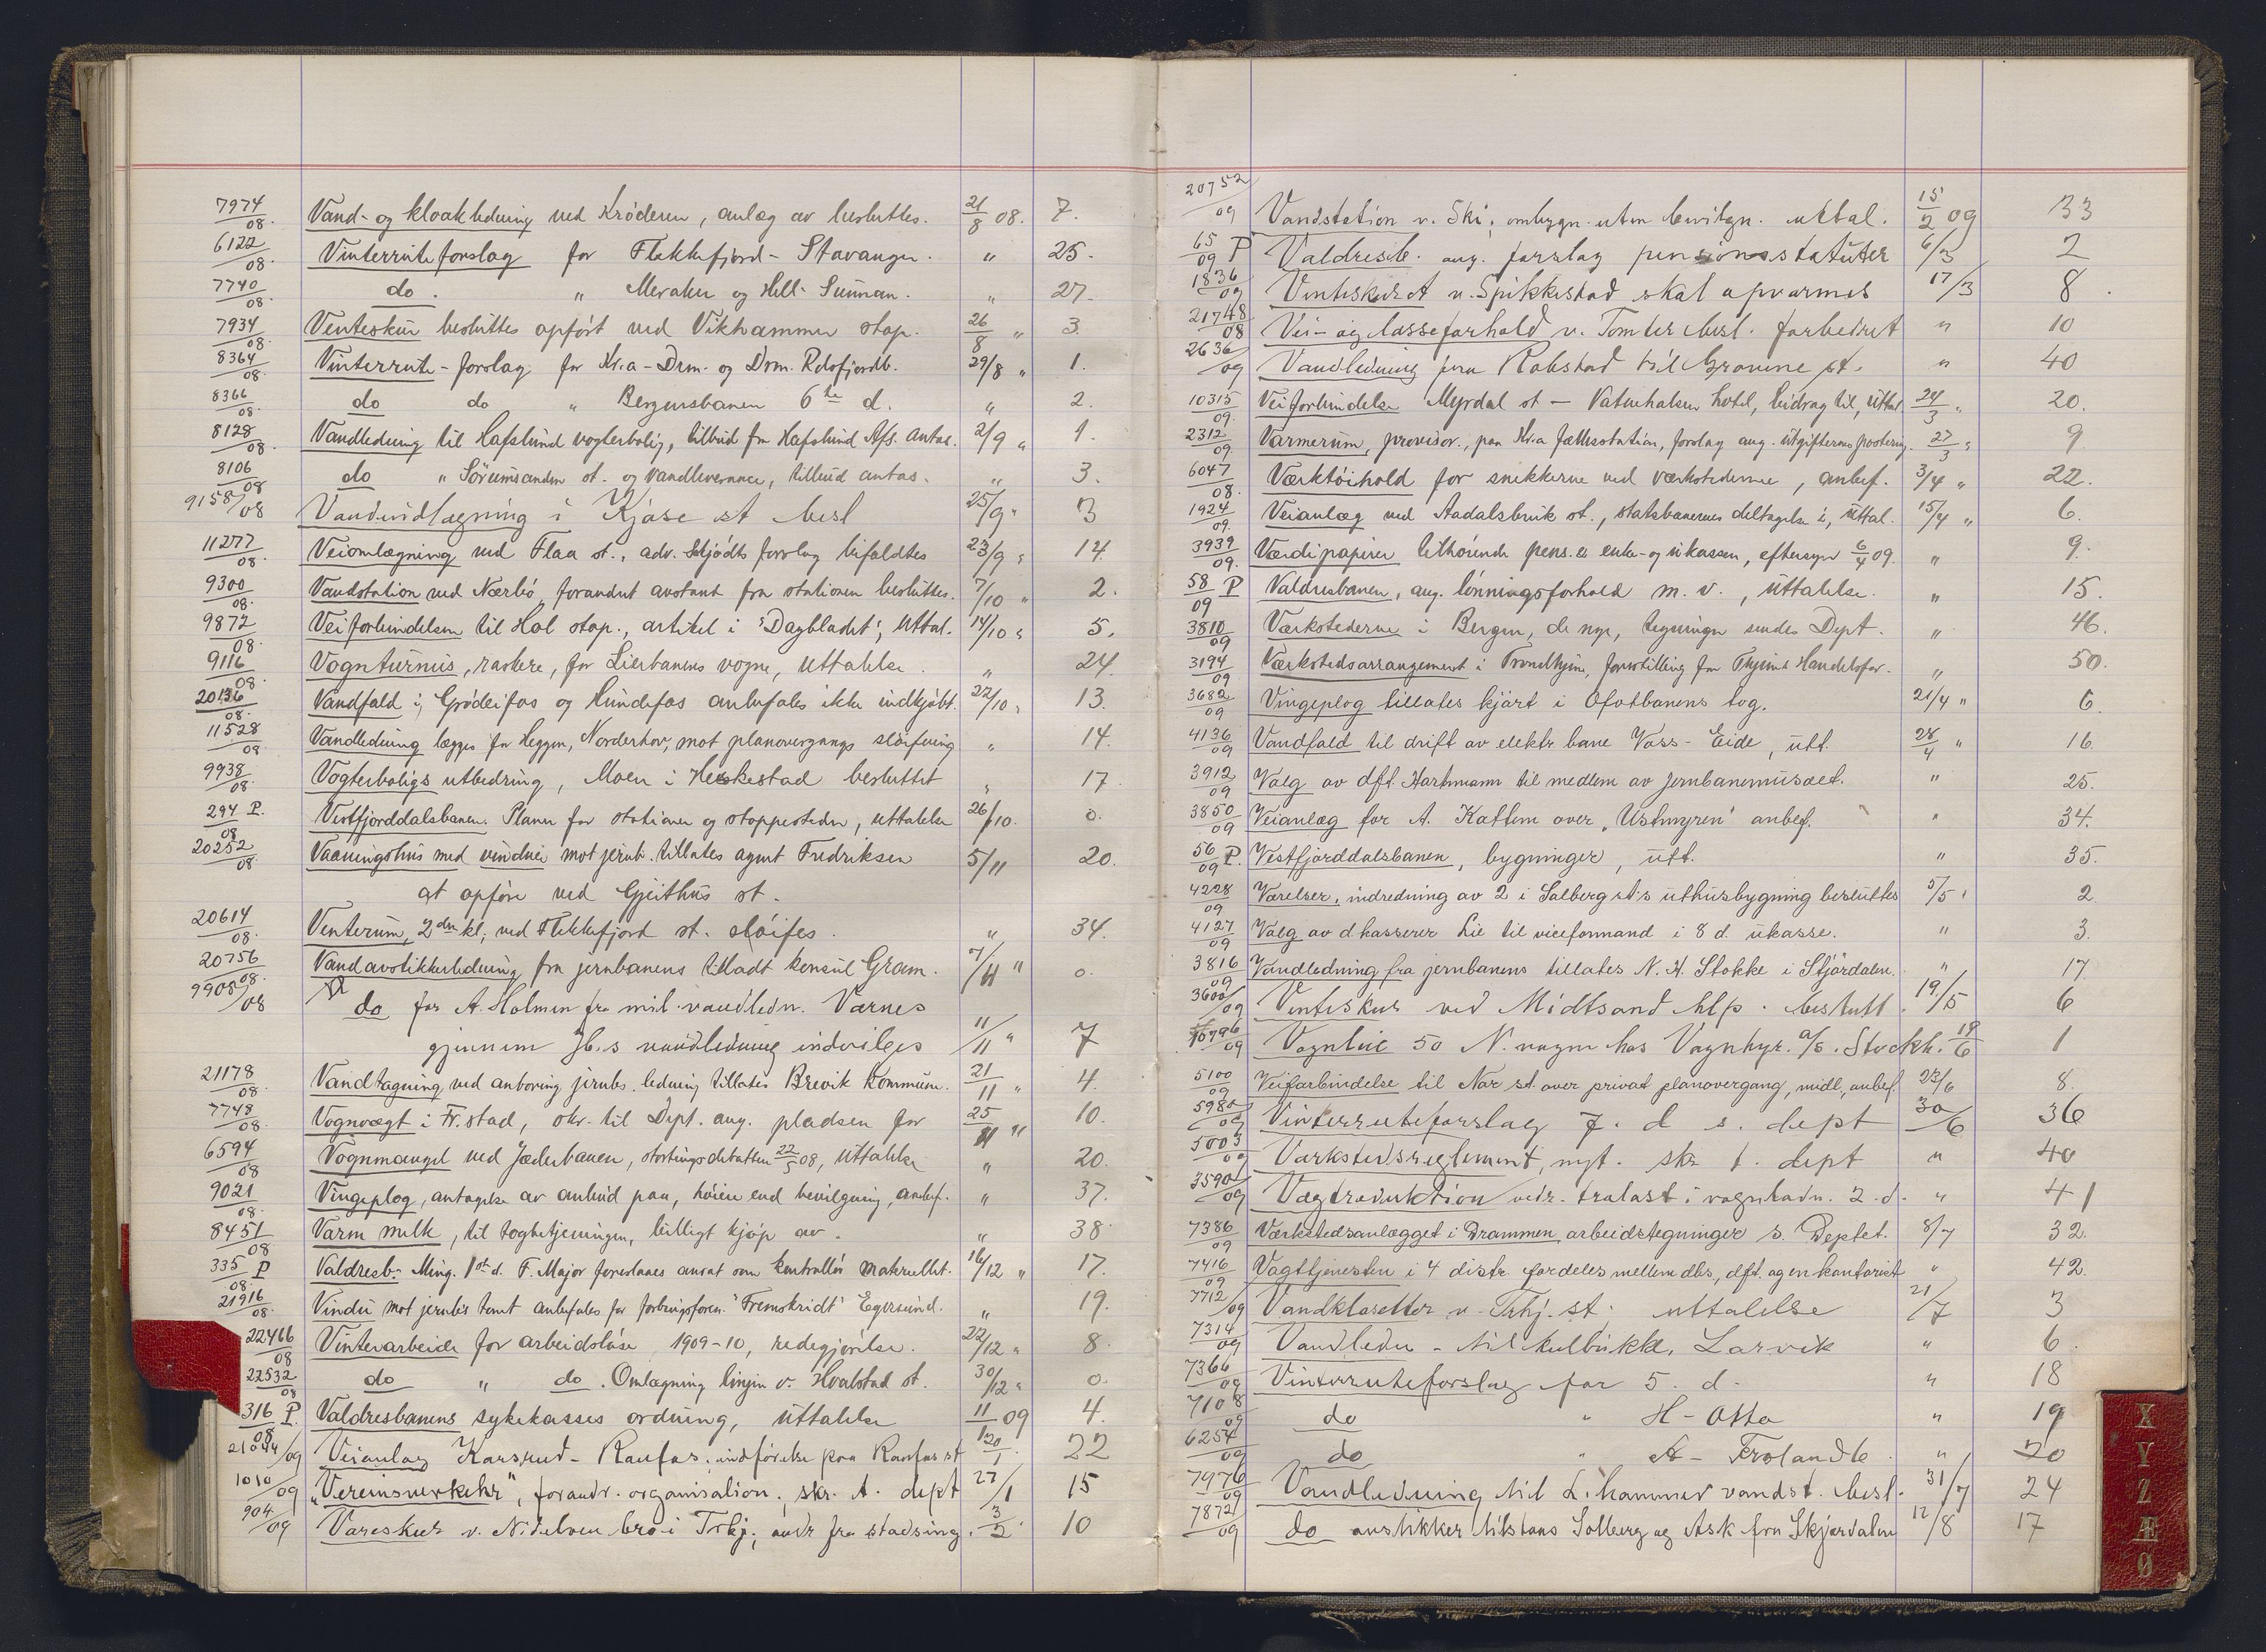 7974/08. Vand- og kloakledning ved Krøderen, anlæg av besluttes. 21/8 08. 7.
6122/08. Vinterruteforslag for Flekkefjord - Stavanger. " 25.
7740/08. do. " Meraker og Hell- Sunnan. " 27.
7934/08. Venteskur besluttes opført ved Vikhammer stop. 26/8 " 3.
8364/08. Vinterrute-forslag for Kr.a - Drm. og Drm. Rdsfjordb. 29/8 " 1.
8366/08. do do " Bergensbanen 6te d. " 2.
8128/08. Vandledning til Hafslund vogterbolig, tilbud fra Hafslund Afs. antas. 2/9 " 1.
8106/08 do " Sørumsanden st. og vandleverance, tilbud antas. " 3.
9158/08 Vandindlægning i Kjose st besl 25/9 " 3
11277/08. Veiomlægning ved Flaa st., adv. Skjødts forslag bifaldtes 23/9 " 14.
9300/08. Vandstation ved Nærbø, forandret avstand fra stationen besluttes. 7/10 " 2.
9872/08. Veiforbindelsen til Hol stop., artikel i "Dagbladet", uttal. 14/10 " 5.
9116/08. Vognturnus, raskere, for Lierbanens vogne, uttalelse. " 24.
20136/08. Vandfald i, Grødeifos og Hundefos anbefales ikke indkjøbt. 22/10 " 13.
11528/08. Vandledning lægges for Heggen, Norderhov, mot planovergangs sløifning " 14.
9938/08. Vogterboligs utbedring, Moen i Heskestad besluttet " 17.
294 P./08 Vestfjorddalsbanen. Planer for stationer og stoppesteder, uttalelse 26/10. 0.
20252/08 Vaaningshus med vinduer mot jernb. tillates agent Fredriksen 5/11 20.
at opføre ved Gjeithus st.
20614/08. Venterum, 2den kl, ved Flekkefjord st. sløifes. " 34.
20756/08. Vandavstikkerledning fra jernbanens tilladt konsul Gram. 7/11 " 0.
9908/08 do for A. Holmen fra mil. vandledn. Værnes
gjennem Jb.s vandledning indvilges 11/11 " 7
21178/08. Vandtagning ved anboring jernbs. ledning tillates Brevik kommune. 21/11 " 4.
7748/08. Vognvægt i Fr.stad, skr. til Dept. ang. pladsen for 25/11 " 10.
6594/08 Vognmangel ved Jæderbanen, stortingsdebatten 22/5 08, uttalelse " 20.
9021/08. Vingeplog, antagelse av anbud paa, høiere end bevilgning, anbef. " 37.
8451/08 Varm melk, til togbetjeningen, billigt kjøp av. " 38.
335 P/08. Valdresb. Ming. 1st d. F. Major foreslaaes ansat som kontrollør materiellet. 16/12 " 17.
21916/08. Vindu mot jernb.s tomt anbefales for forbrugsforen. "Fremskridt" Egersund. " 19.
22466/08 Vinterarbeide for arbeidsløse 1909-10, redegjørelse. 22/12 " 8.
22532/08 do " do. Omlægning linjen v. Hvalstad st. 30/12 " 0.
316 P./08 Valdresbanens sykekasses ordning, uttalelse 11/1 09 4.
21044/09 Veianlæg Karsrud - Raufos, indførelse paa Raufos st 20/1. 22
1010/09 "Vereinsverkehr", forandr. organisation. skr. t. dept 27/1 15
904/09 Vareskur v. Nidelven bro i Trhj; andr fra stadsing. 3/2. 10
20752/09 Vandstation v. Ski; ombygn. uten bevilgn. uttal. 15/2 09 33
65 P/09 Valdresb. ang. forslag pensionsstatuter 6/3 2
1836/09 Venteskuret v. Spikkestad skal opvarmes 17/3 8.
21748/08 Vei- og lasseforhold v. Tomter besl. forbedret " 10
2636/09 Vandledning fra Rokstad til Gravene st. " 40
10315/09. Veiforbindelse Myrdal st - Vatnahalsen hotel, bidrag til, uttal 24/3 " 20.
2312/09. Varmerum, provisor., paa Kr.a fællesstation, forslag ang. utgifternes postering. 27/3 " 9
6047/08. Værktøihold for snikkerne ved værkstederne, anbef. 3/4 " 22.
1924/09. Veianlæg ved Aadalsbruk st., statsbanernes deltagelse i, uttal. 15/4 " 6.
3939/09. Værdipapirer tilhørende pens. ei enke- og ukassen, eftersyn 6/4 09. " 9.
58 P/09 Valdresbanen, ang. lønningsforhold m. v., uttalelse. " 15.
3810/09 Værkstederne i Bergen, de nye, tegninger sendes Dept. " 46.
3194/09 Værkstedsarrangement i Trondhjem, forestilling fra Thjems Handelsfor. " 50.
3682/09 Vingeplog tillates kjørt i Ofotbanens tog. 21/4 " 6.
4136/09 Vandfald til drift av elektr bane Voss - Eide, utt. 28/4 " 16.
3912/09 Valg av dft. Hartmann til medlem av jernbanemusæet. " 25.
3850/09 Veianlæg for A. Kattem over "Ustmyren" anbef. " 34.
56 P./09 Vestfjorddalsbanen, bygninger, utt. " 35.
4228/09 Værelser, indredning av 2 i Solberg st's uthusbygning besluttes 5/5 " 2.
4127/09 Valg av d.kasserer Lie til viceformand i 8 d. ukasse. " 3.
3816/09 Vandledning fra jernbanens tillates N. H. Stokke i Stjørdalen. " 17.
3600/09 Venteskur ved Midtsand hlp. beslutt. 19/5 6
10796/09 Vognleie 50 N. vogne hos Vognhyr. a/b. Stockh. 19/6 1
5100/09 Veiforbindelse til Nor st. over privat planovergang, midl., anbef. 23/6 8.
5980/09 Vinterruteforslag 7. d s. dept 30/6 36
5003/09 Værkstedsreglement, nyt. skr t. dept " 40
3590/09 Vægtreduktion vedr. tralast i vognladn. 2. d. " 41
7386/09 Værkstedsanlægget i Drammen, arbeidstegninger s. Deptet. 8/7 32.
7416/09 Vagttjenesten i 4 distr. fordeles mellem dbs, dft. og en kontorist " 42.
7712/09 Vandklosetter v. Trhj. st. uttalelse 21/7 3
7314/09 Vandledn - til kulbukk, Larvik " 6.
7366/09 Vinterruteforslag for 5. d. " 18
7108/09 do " H - Otta " 19
6254/09 do " A - Frolandb. " 20
7976/09 Vandledning til L.hammer vandst. besl. 31/7 24
7872/09 do avstikker tilstaas Solberg og Ask fra Skjærdalen 12/8 17
X
Y
Z
Æ
Ø